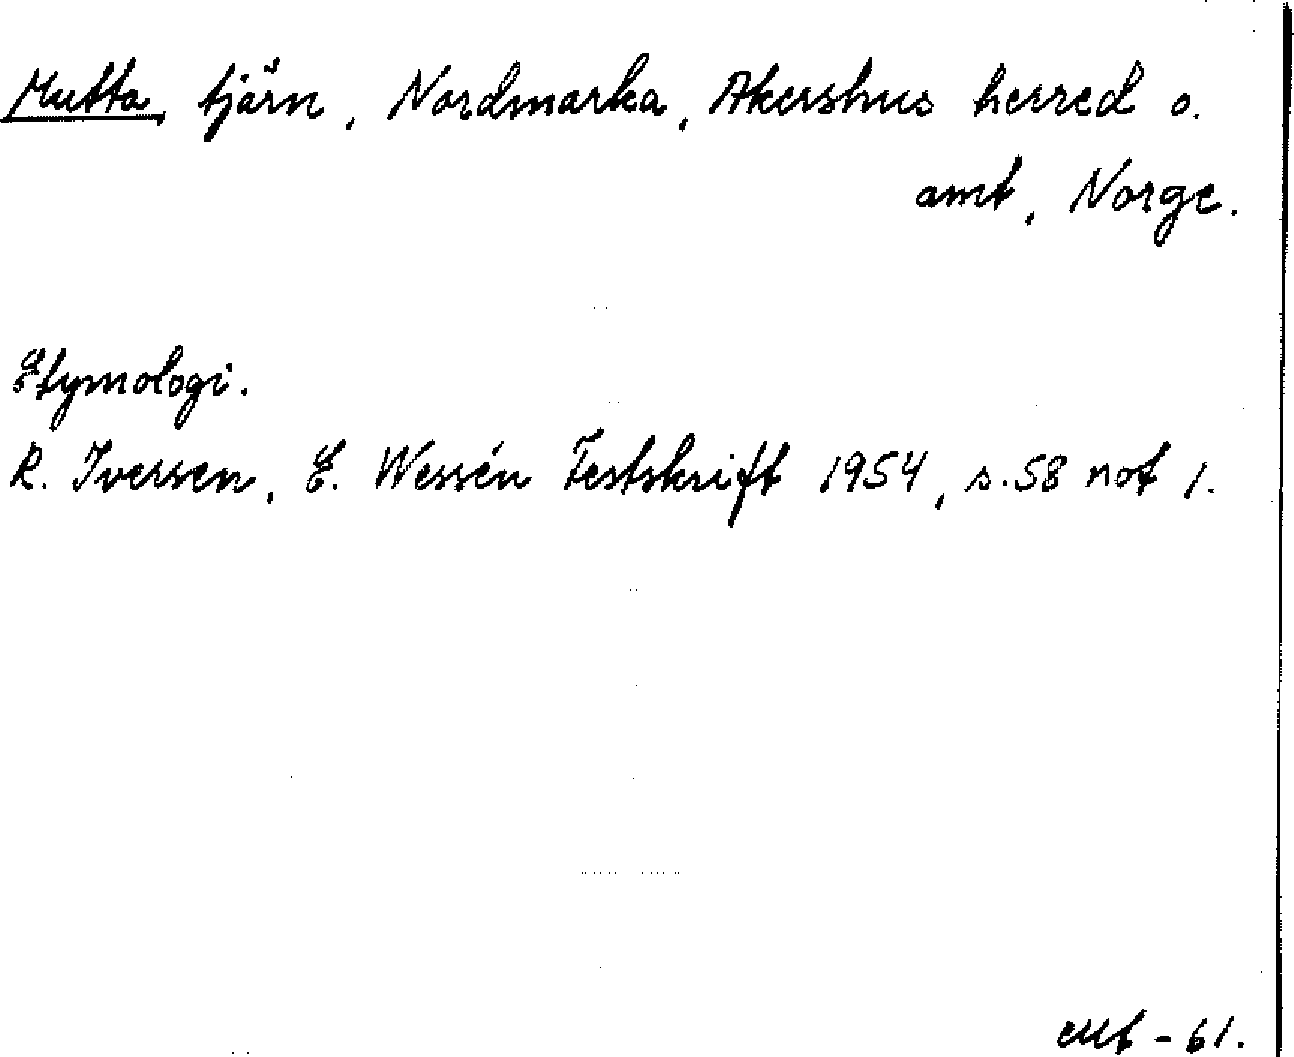 Mutta, tjärn, Nordmarka, Akershus herred o.
amt, Norge.
Etymologi.
R. Iversen, E. Wessén Festskrift 1954, s. 58 not 1.
- 61.